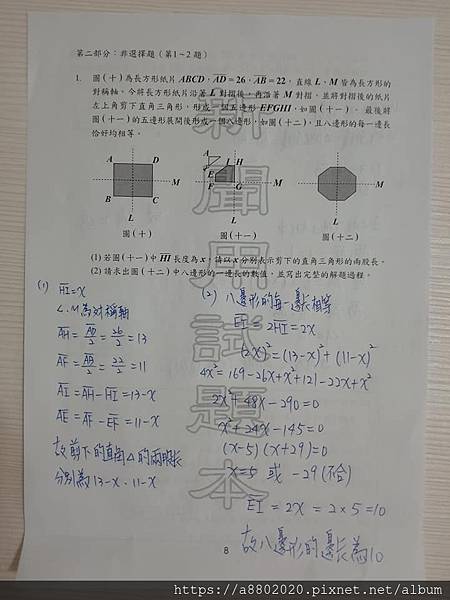 第二部分：非選擇題（第1～2題）
1. 圖(十)為長方形紙片 ABCD，AD=26，AB=22，直線 L、M 皆為長方形的
對稱軸。今將長方形紙片沿著 L 對摺後，再沿著 M 對摺，並將對摺後的紙片
左上角剪下直角三角形，形成一個五邊形 EFGHI，如圖(十一)。最後將
圖(十一)的五邊形展開後形成一個八邊形，如圖(十二)，且八邊形的每一邊長
恰好均相等。
A D
M
B C
L
圖(十)
A L H
I
E
M
F G
L
圖(十一)
M
L
圖(十二)
(1) 若圖(十一)中 HI 長度為 x，請以 x 分別表示剪下的直角三角形的兩股長。
(2) 請求出圖(十二)中八邊形的一邊長的數值，並寫出完整的解題過程。
(1) HI=x
L.M為對稱軸
AH=AD/2=26/2=13
AF=AB/2=22/2=11
AI=AH-HI=13-x
AE=AF-EF=11-x
故剪下的直角△的兩股長
分別為13-x、11-x
(2) 八邊形的每一邊長相等
EI=2HI=2x
(2x)²=(13-x)²+(11-x)²
4x²=169-26x+x²+121-22x+x²
2x²+48x-290=0
x²+24x-145=0
(x-5)(x+29)=0
x=5 或 -29(不合)
EI=2x=2×5=10
故八邊形的邊長為10
新聞用試題本
8
https://a8802020.pixnet.net/album